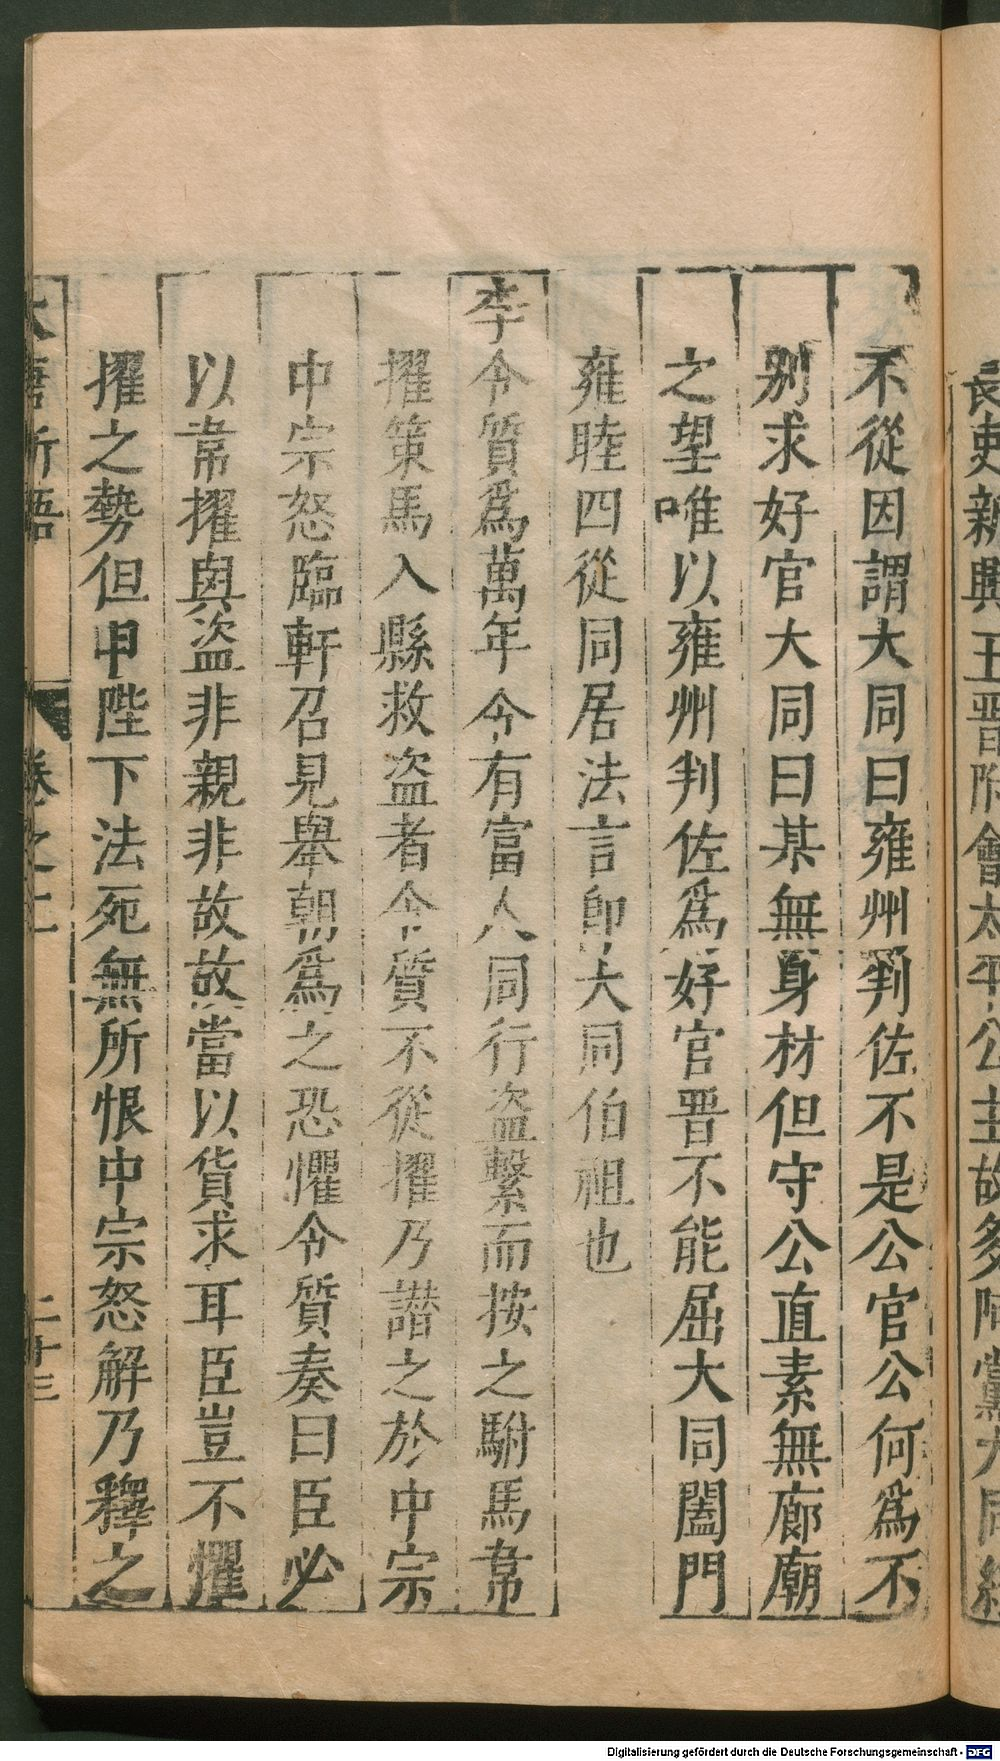 長吏新興王晉附會太平公主故多阿黨大同終
不從因謂大同曰雍州判佐不是公官公何爲不
別求好官大同曰某無身材但守公直素無廊廟
之望唯以雍州判佐爲好官晉不能屈大同闔門
雍睦四從同居法言卽大同伯祖也
李令質爲萬年令有富人同行盜繫而按之駙馬韋
擢策馬入縣救盜者令質不從擢乃譖之於中宗
中宗怒臨軒召見舉朝爲之恐懼令質奏曰臣必
以韋擢與盜非親非故故當以貨求耳臣豈不懼
擢之勢但申陛下法死無所恨中宗怒解乃釋之
大唐新語
卷之二
二十三
Digitalisierung gefördert durch die Deutsche Forschungsgemeinschaft - DFG